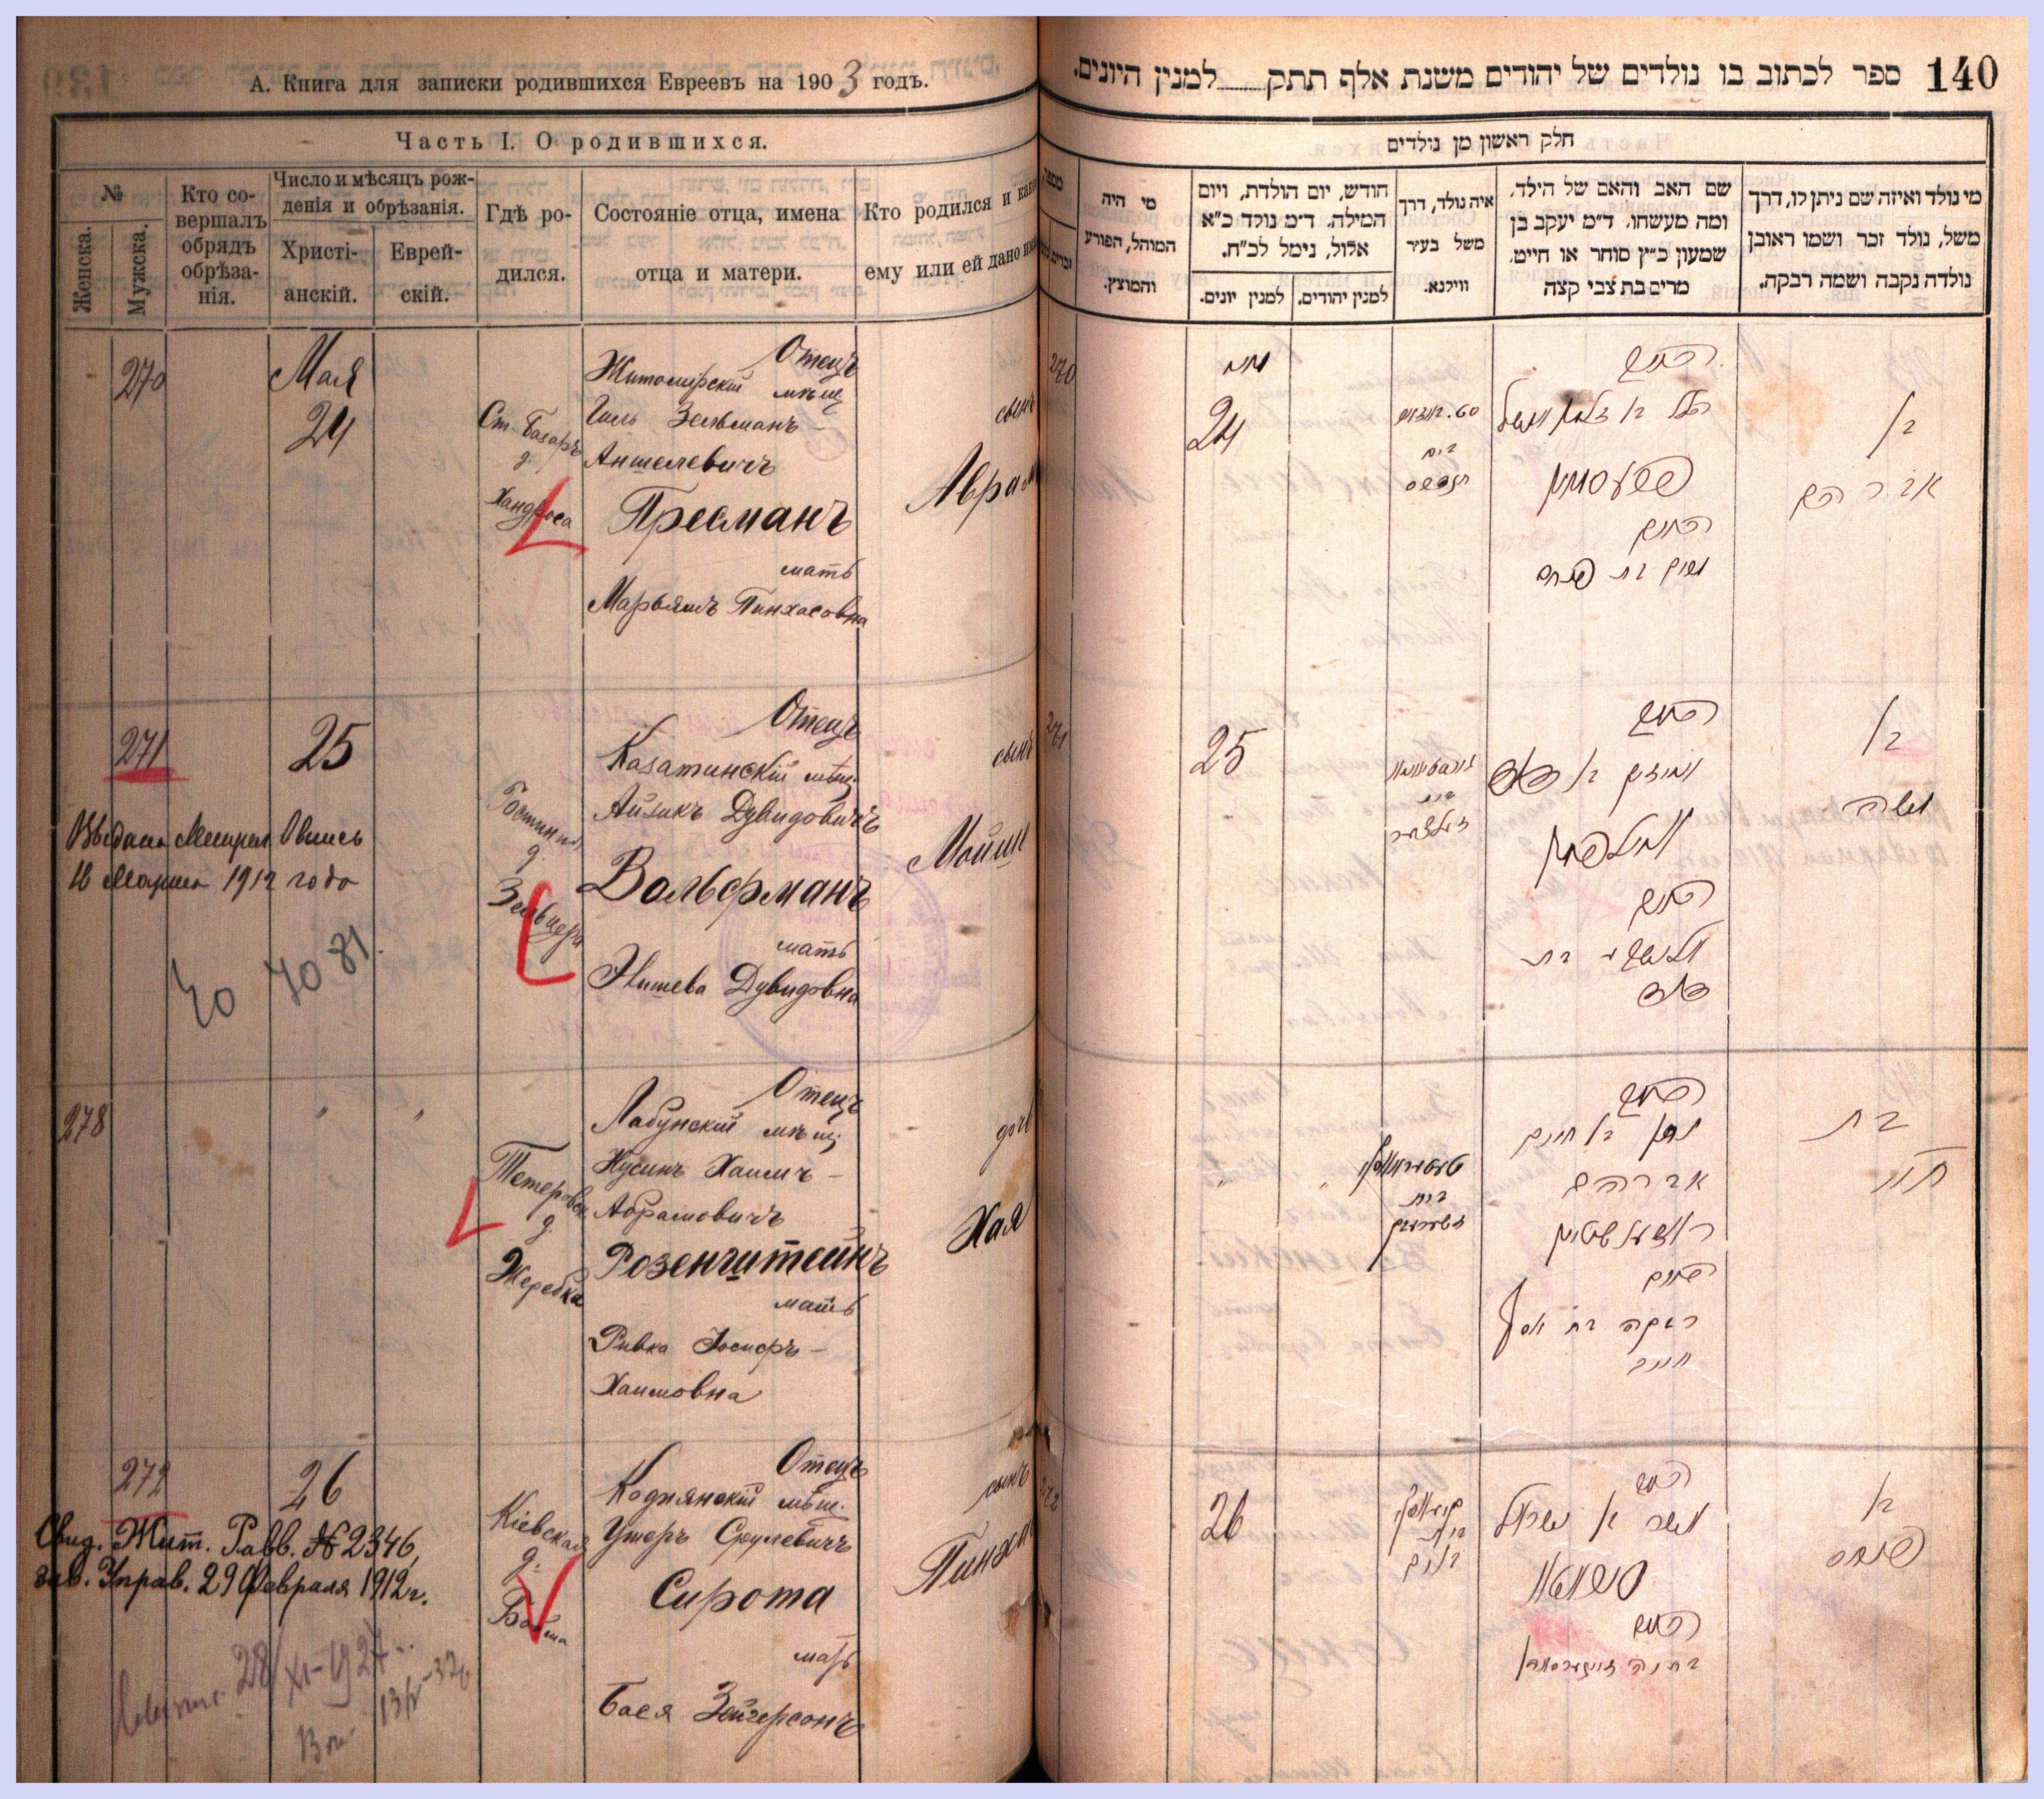 А. Книга для записки родившихся Евреевъ на 1903 годъ.
Часть I. О родившихся.
№
Женска.
Мужска.
Кто со-
вершалъ
обрядъ
обрѣза-
нія.
Число и мѣсяцъ рож-
денія и обрѣзанія.
Христі-
анскій.
Еврей-
скій.
Гдѣ ро-
дился.
Состояніе отца, имена
отца и матери.
Кто родился и
ему или ей дано
270
Мая
24
Ст. Базаръ
д.
Отецъ
Житомирскій мѣщ
Гиль Зельманъ-
Аншелевичъ
Пресманъ
мать
Марьямъ Пинхасовна
сынъ
Аврам
271
25
Выдана Метрич. Опись
16 Марта 1912 года
40 4081.
д.
Зельцера
Отецъ
Казатинскій мѣщ.
Айзикъ Дувидовичъ
Вольфманъ
мать
Дувидовна
сынъ
Мойш
278
"
"
д.
Жеребка
Отецъ
Лабунскій мѣщ
Нусинъ Хаимъ-
Абрамовичъ
Розенштейнъ
мать
Ривка Іосифъ-
Хаимовна
дочь
Хая
272
26
Свид. Жит. Равв. № 2346,
зав. Управ. 29 Февраля 1912 г.
28/XI-1927
Кіевская
д.
Отецъ
Коднянскій мѣщ.
Ушеръ Срулевичъ
Сирота
мать
Бася Зейгерсонъ
сынъ
Пинха
ספר לכתוב בו נולדים של יהודים משנת אלף תתק למנין היונים. 140
חלק ראשון מן נולדים
מי נולד ואיזה שם ניתן לו, דרך
משל, נולד זכר ושמו ראובן
נולדה נקבה ושמה רבקה.
שם האב והאם של הילד,
ומה מעשהו. ד״מ יעקב בן
שמעון כ״ץ סוחר או חייט,
מרים בת צבי קצה
איה נולד, דרך
משל בעיר
ווילנא.
חודש, יום הולדת, ויום
המילה. ד״מ נולד כ״א
אלול, נימל לכ״ח.
למנין יהודים.
למנין יונים.
מי היה
המוהל, הפורע
והמוצץ.
270
מאי
24
בית
האב
פרעסמאן
האם
מרים בת פנחס
בן
אברהם
271
25
בית
האב
אייזיק בן דוד
וואלפמאן
האם
בת
דוד
בן
משה
"
"
בית
האב
נתן בן חיים
אברהם
ראזענשטיין
האם
רבקה בת יוסף
חיים
בת
חי׳
272
26
בית
האב
אשר בן ישראל
סיראטא
האם
בן
פנחס